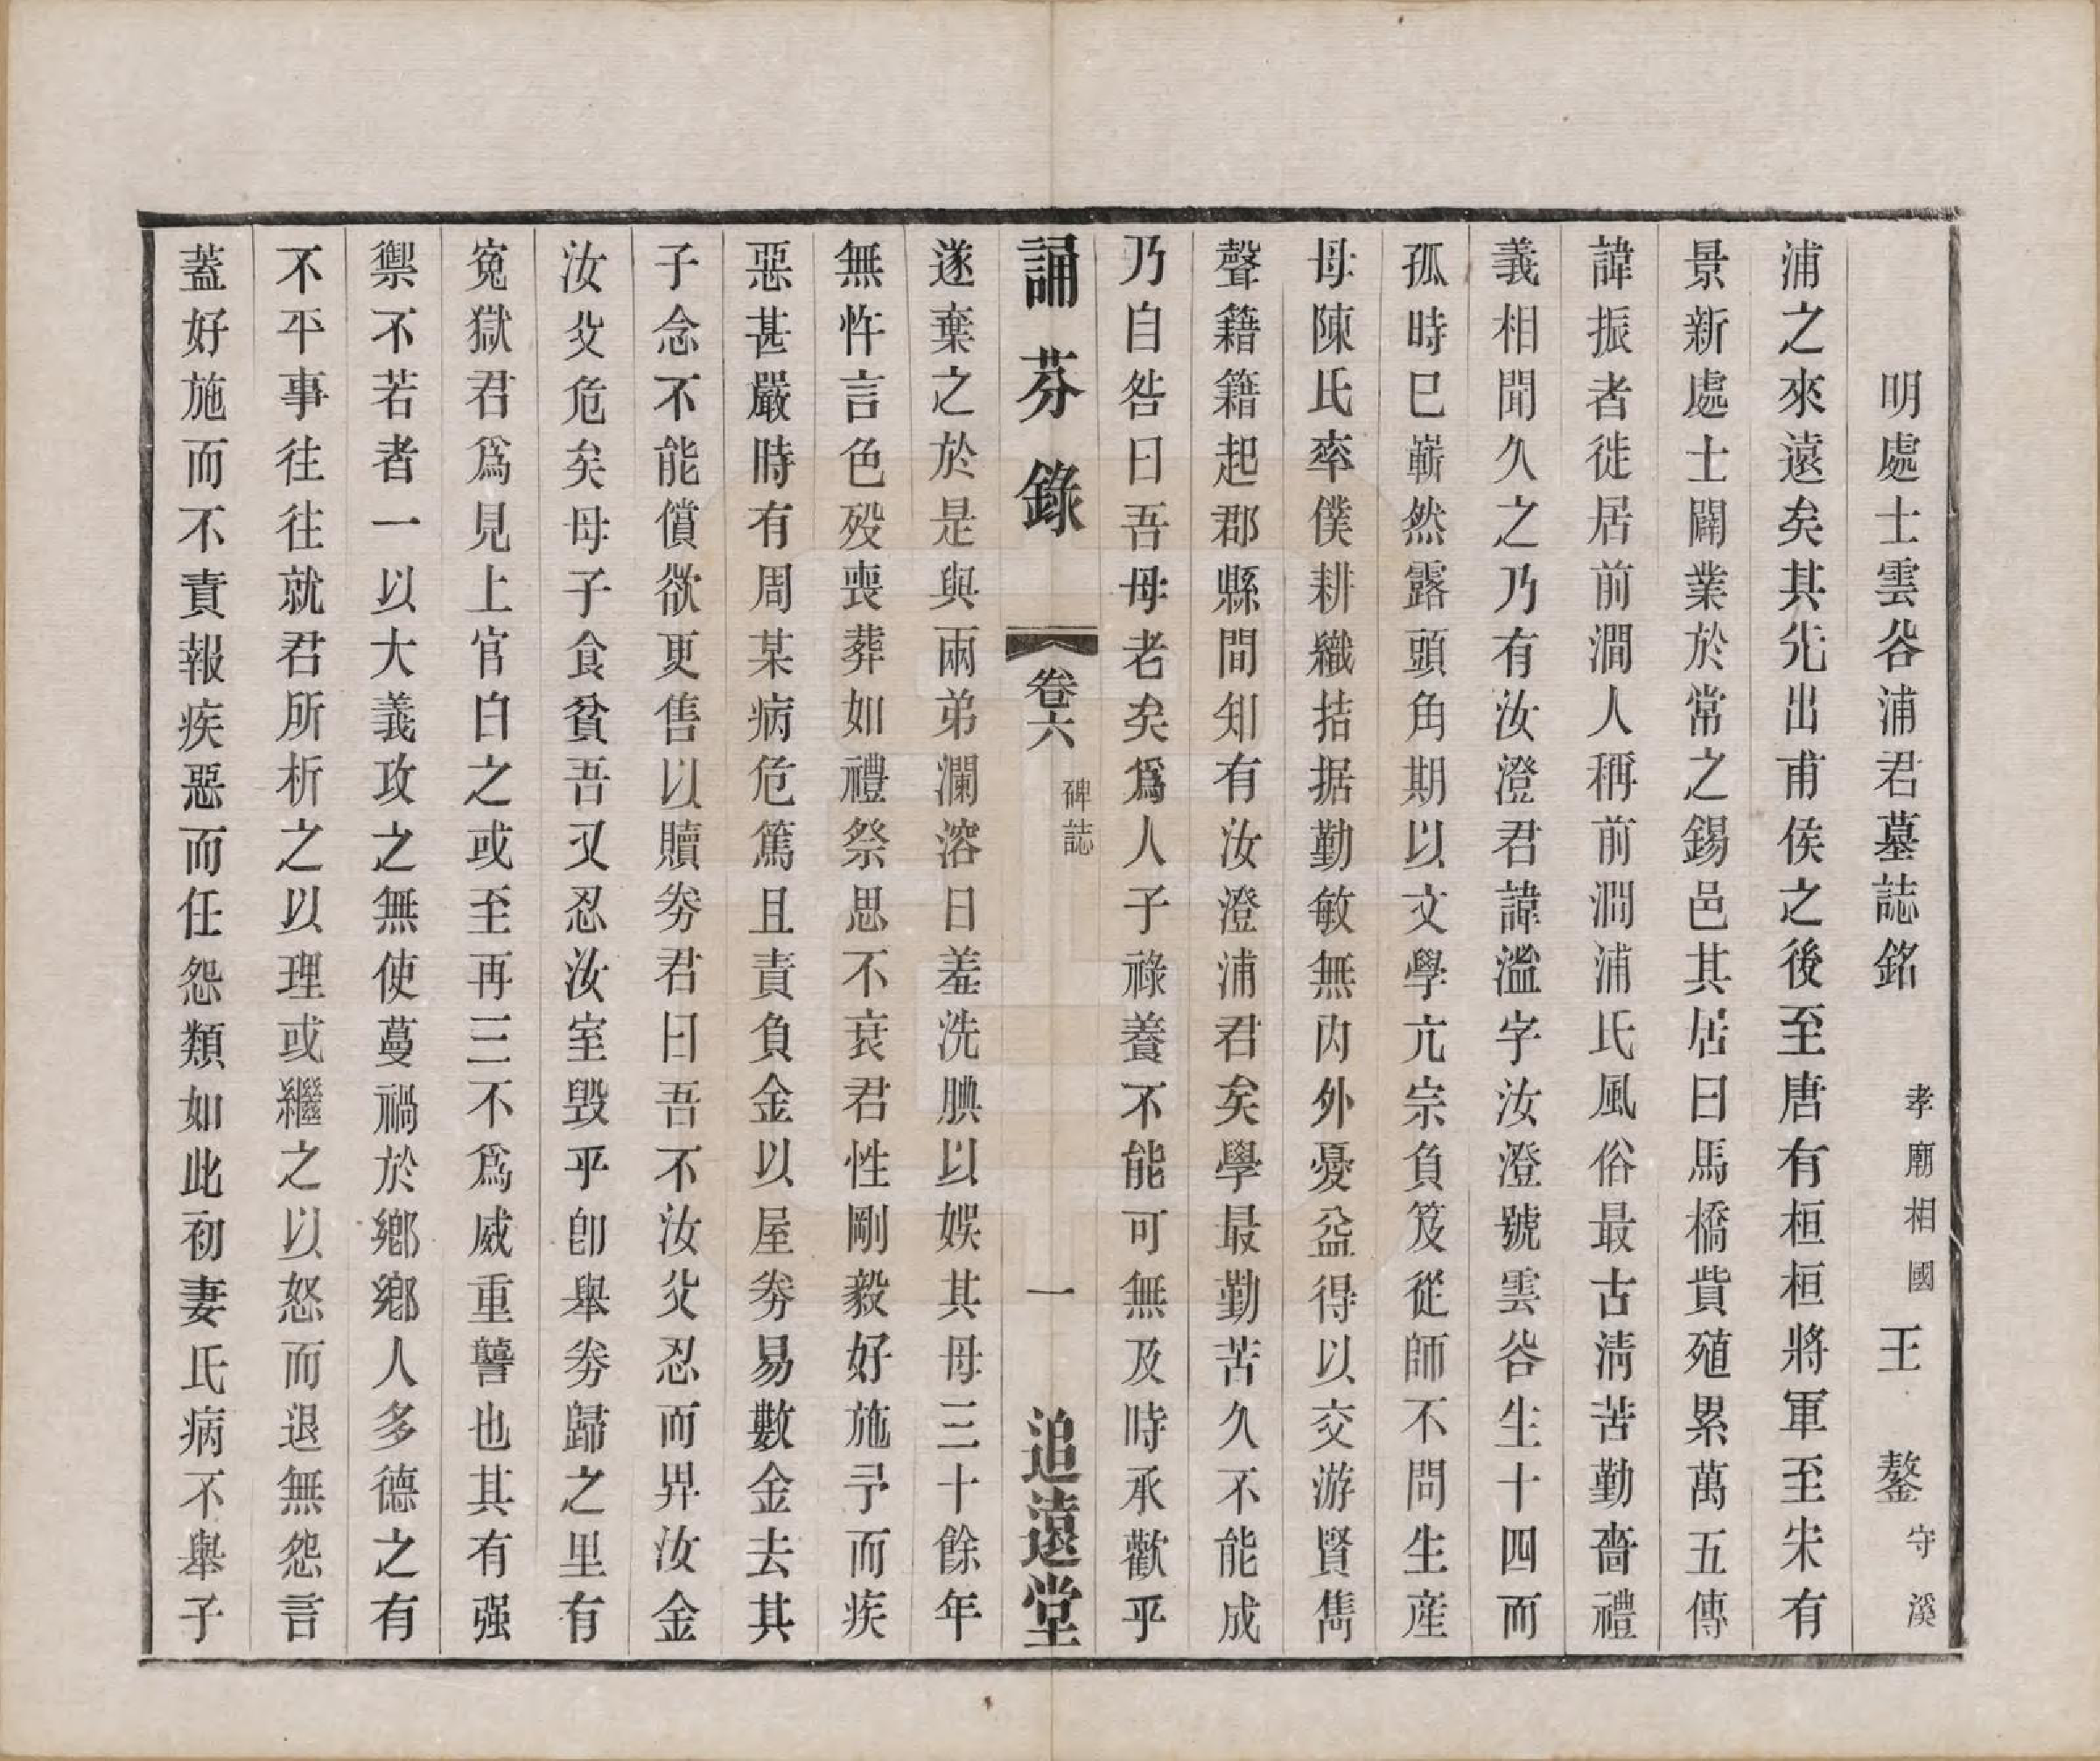 明處士雲谷浦君墓誌銘 孝廟相國王 鏊守溪
浦之來遠矣其先出甫侯之後至唐有桓桓將軍至宋有
景新處士闢業於常之錫邑其居曰馬橋貲殖累萬五傳
諱振者徙居前澗人稱前澗浦氏風俗最古淸苦勤嗇禮
義相聞久之乃有汝澄君諱濫字汝澄號雲谷生十四而
孤時巳嶄然露頭角期以文學亢宗負笈從師不問生產
母陳氏率僕耕織拮据勤敏無內外憂益得以交游賢雋
聲籍籍起郡縣間知有汝澄浦君矣學最勤苦久不能成
乃自咎曰吾母老矣爲人子祿養不能可無及時承歡乎
誦芬錄 卷六 碑誌 一 追遠堂
遂棄之於是與兩弟瀾溶日羞洗腆以娛其母三十餘年
無忤言色歿喪葬如禮祭思不衰君性剛毅好施予而疾
惡甚嚴時有周某病危篤且責負金以屋劵易數金去其
子念不能償欲更售以贖劵君曰吾不汝父忍而畀汝金
汝父危矣母子食貧吾又忍汝室毀乎卽舉劵歸之里有
寃獄君爲見上官白之或至再三不爲威重讋也其有强
禦不若者一以大義攻之無使蔓禍於鄉鄉人多德之有
不平事往往就君所析之以理或繼之以怒而退無怨言
蓋好施而不責報疾惡而任怨類如此初妻氏病不舉子